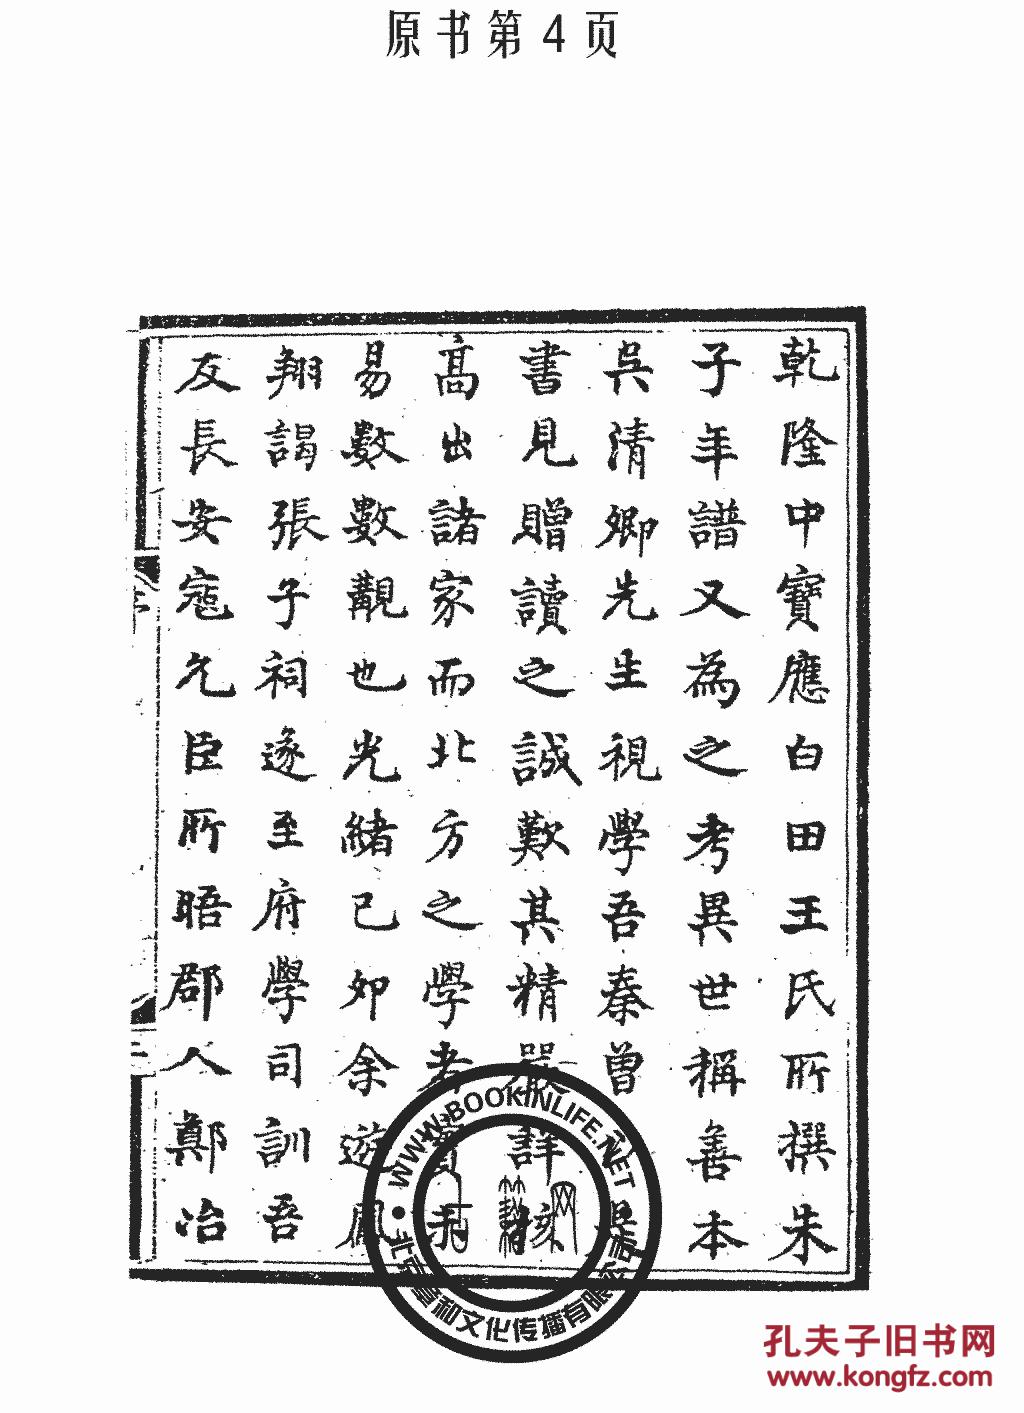 原书第4页
乾隆中寶應白田王氏所撰朱
子年譜又為之考異世稱善本
吳清卿先生視學吾秦曾
書見贈讀之誠歎其精嚴詳核
高出諸家而北方之學者
易數數觀也光緒己卯余遊鳳
翔謁張子祠遂至府學司訓吾
友長安寇允臣所晤郡人鄭冶
WWW.BOOKINLIFE.NET
文化传播有限
孔夫子旧书网
www.kongfz.com